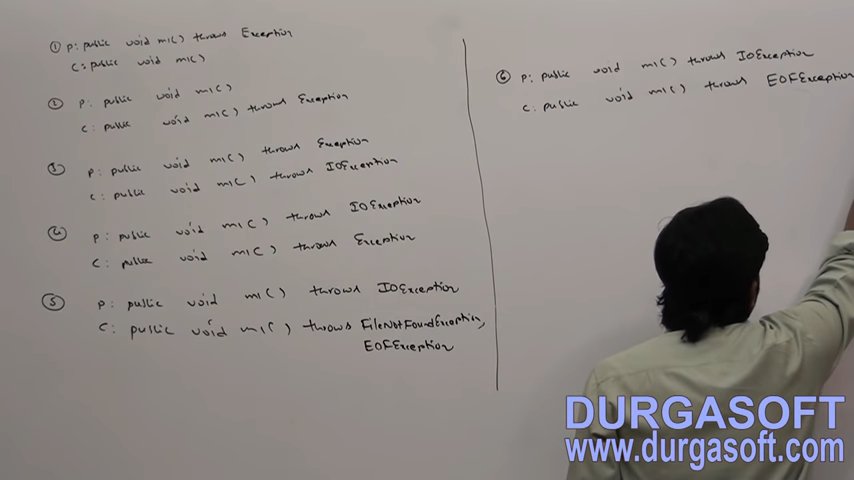 ① P: public void m1() throws Exception
C: public void m1()
② P: public void m1()
C: public void m1() throws Exception
③ P: public void m1() throws Exception
C: public void m1() throws IOException
④ P: public void m1() throws IOException
C: public void m1() throws Exception
⑤ P: public void m1() throws IOException
C: public void m1() throws FileNotFoundException,
EOFException
⑥ P: public void m1() throws IOException
C: public void m1() throws EOFException
DURGASOFT
www.durgasoft.com